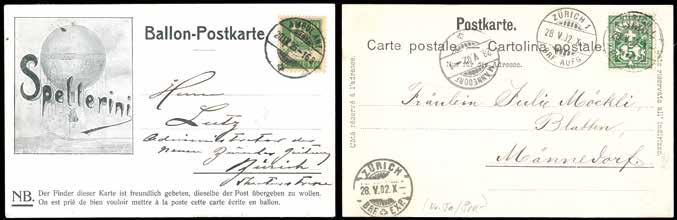 Ballon-Postkarte.
Spelterini
Herrn
Lutz
Administrator der
neuen Zürcher Zeitung
Zürich
NB. Der Finder dieser Karte ist freundlich gebeten, dieselbe der Post übergeben zu wollen.
On est prié de bien vouloir mettre à la poste cette carte écrite en ballon.
Postkarte.
Carte postale. Cartolina postale.
Nur für die Adresse.
Côté réservé à l'adresse.
Lato riservato all'indirizzo.
ZÜRICH 1
28.V.02.X
BRF. AUFG.
MÄNNEDORF
28.V.02
Fräulein Julie Möckli,
Blatten,
Männedorf.
ZÜRICH
28.V.02.X
BRF. EXP.